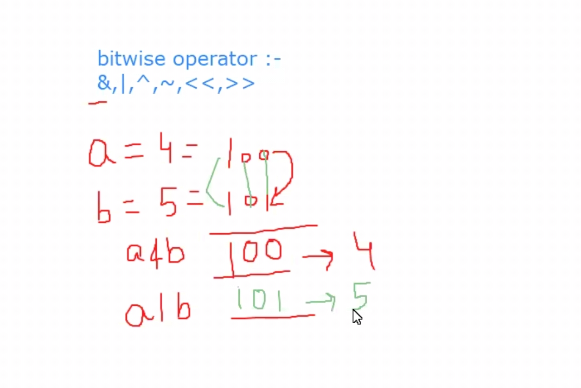 bitwise operator :-
&,|,^,~,<<,>>
a = 4 = 100
b = 5 = 101
a&b 100 → 4
a|b 101 → 5